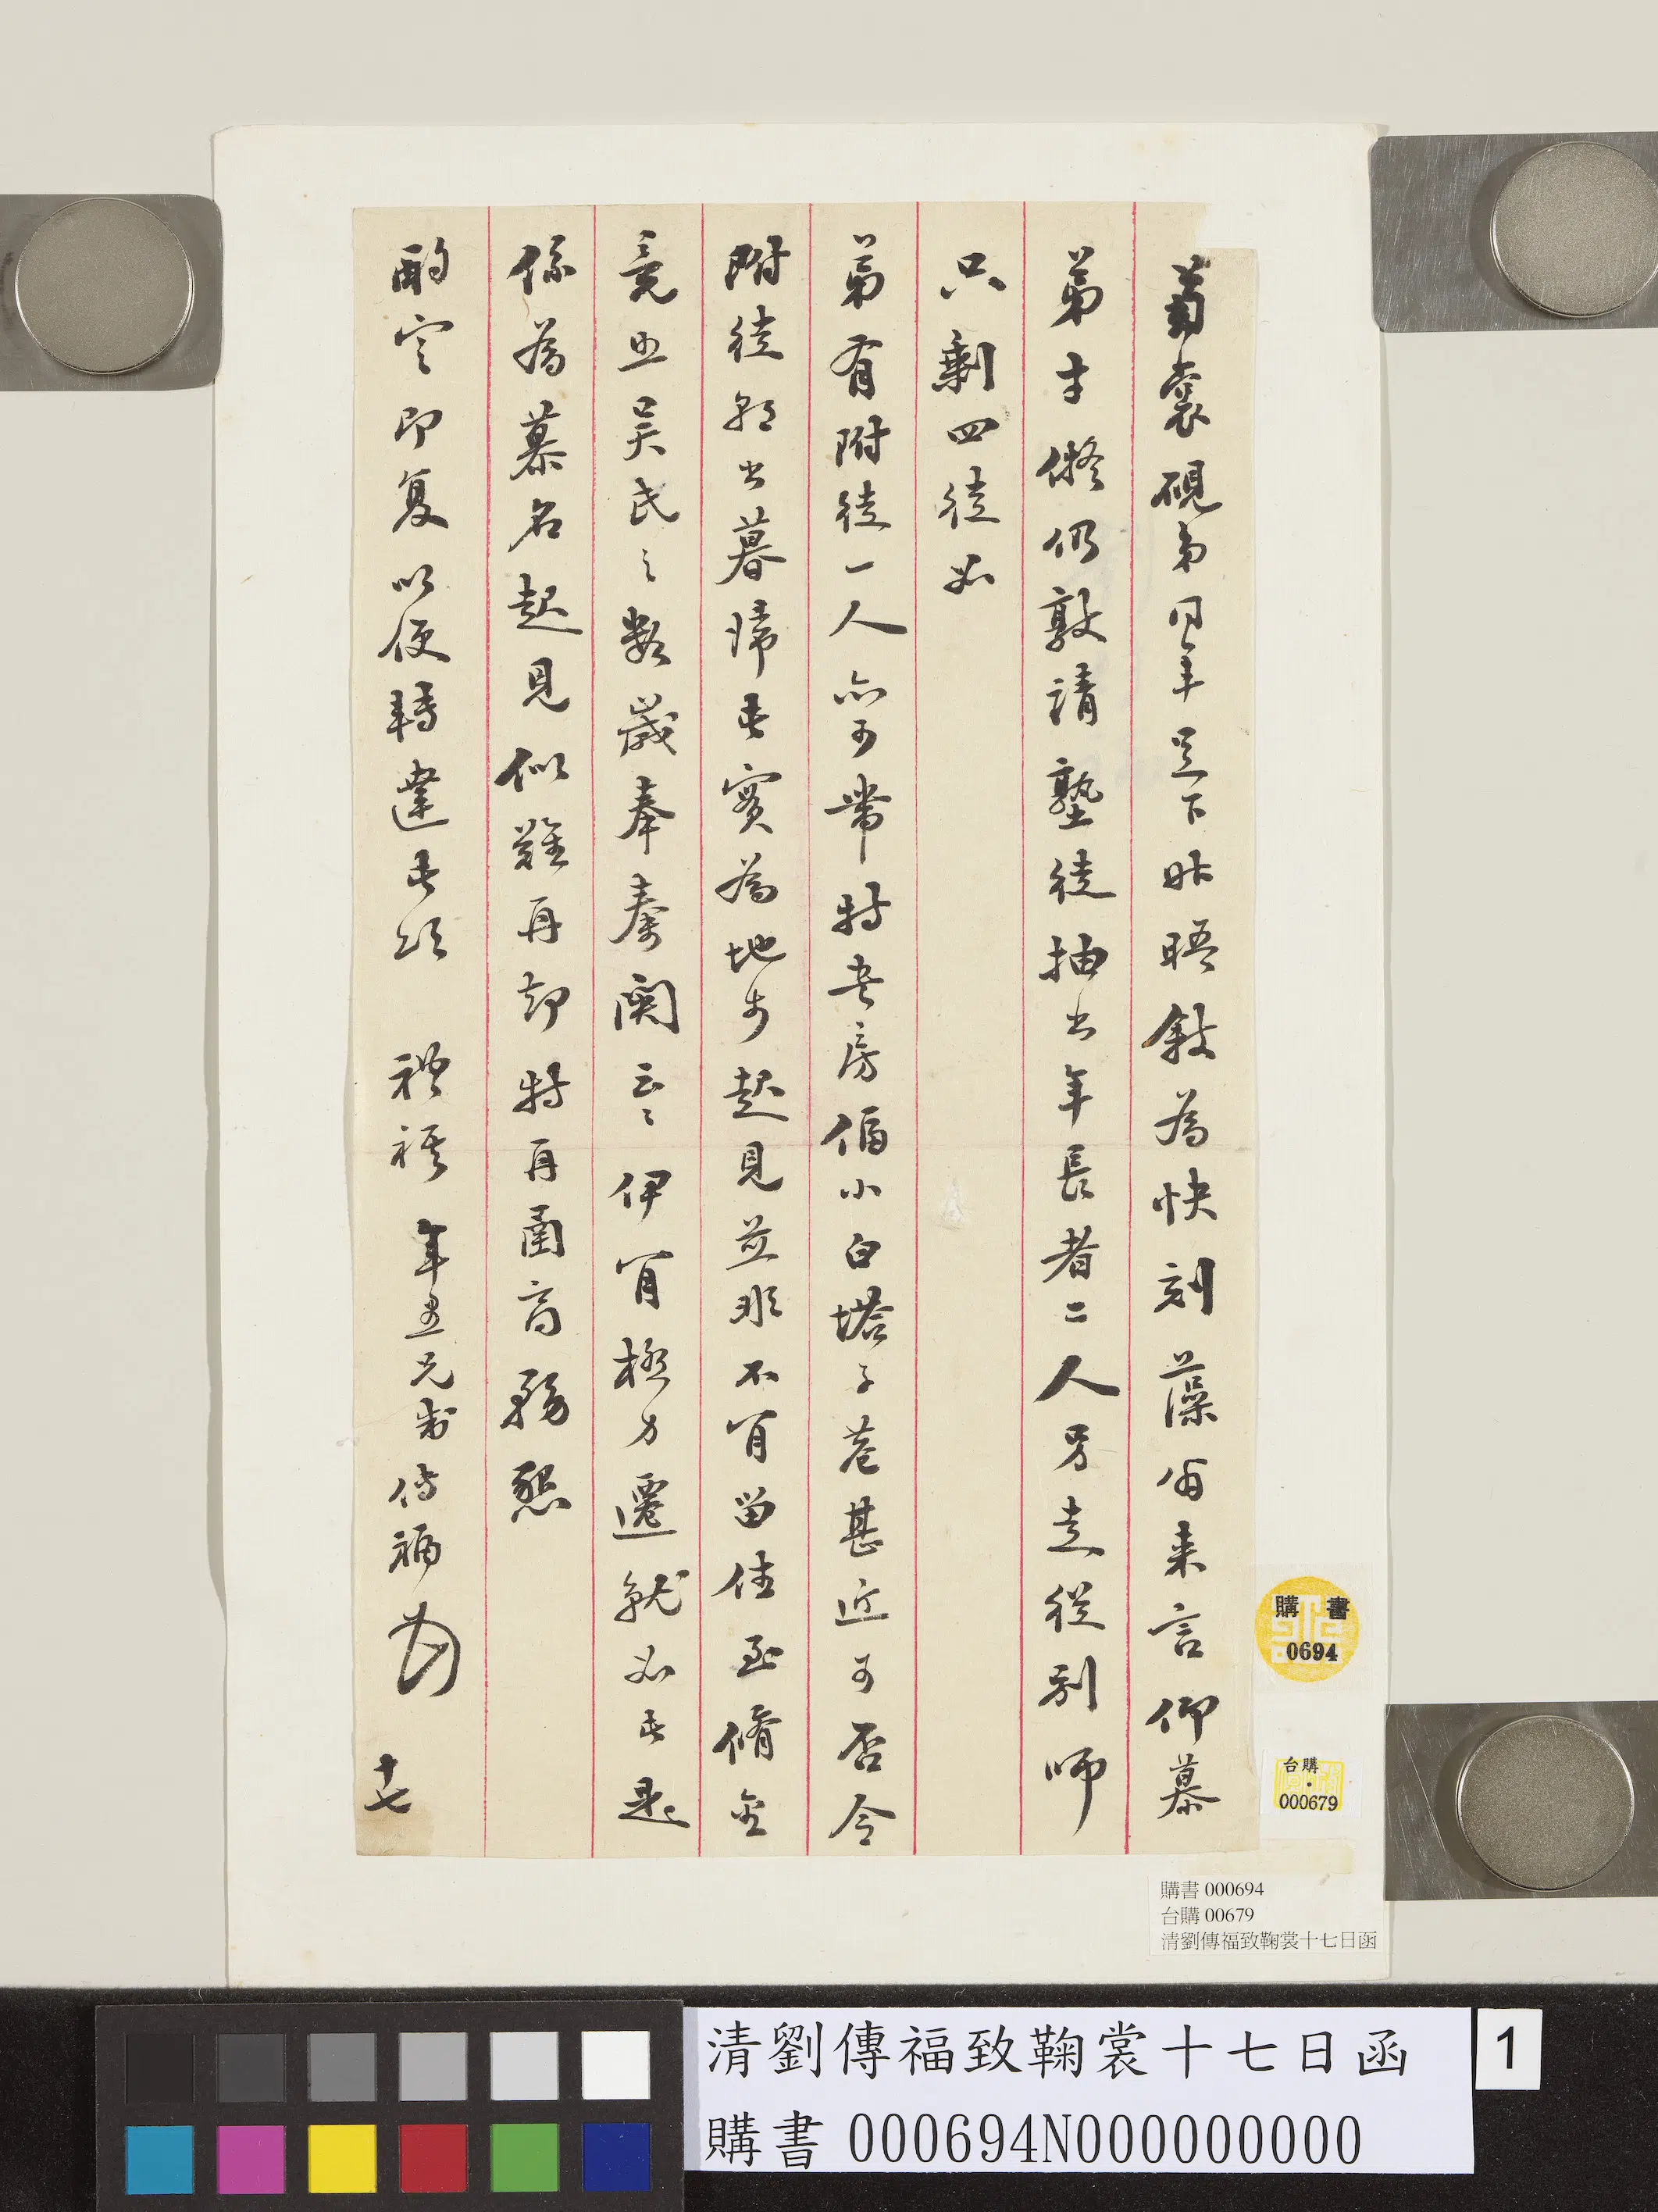 菊裳硯弟同年足下昨晤敘為快刻藻翁來言仰慕
弟才儗仍敦請塾徒抽出年長者二人另走從別師
只剩四徒如
弟有附徒一人亦可帶特書房偪小白塔子巷甚近可否令
附徒朝出暮歸此實為地步起見並非不肯留住至脩金
竟照吳氏之數歲奉秦關云云伊肯極力遷就如此是
係為慕名起見似難再卻特再函商務懇
酌定即复以便轉達此頌 禫禧 年愚兄制傳福
十七
購書
0694
台購
000679
購書 000694
台購 00679
清劉傳福致鞠裳十七日函
清劉傳福致鞠裳十七日函
購書 000694N000000000
1